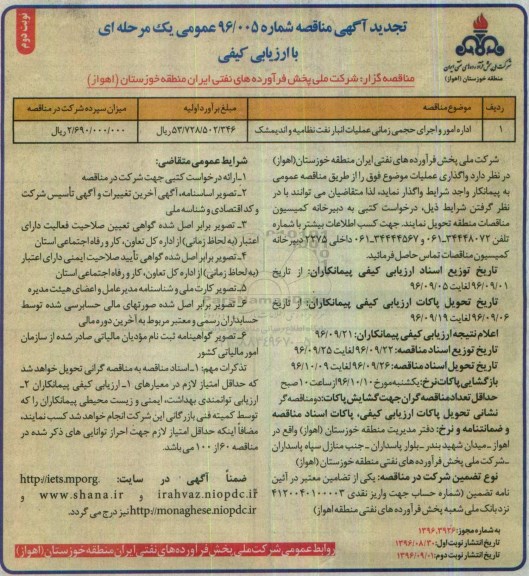 نوبت دوم
تجدید آگهی مناقصه شماره ۹۶/۰۰۵ عمومی یک مرحله ای
با ارزیابی کیفی
شرکت ملی پخش فرآورده های نفتی ایران
منطقه خوزستان (اهواز)
مناقصه گزار: شرکت ملی پخش فرآورده های نفتی ایران منطقه خوزستان (اهواز)
ردیف موضوع مناقصه مبلغ برآورد اولیه میزان سپرده شرکت در مناقصه
۱ اداره امور و اجرای حجمی زمانی عملیات انبار نفت نظامیه و اندیمشک ۵۳/۷۲۸/۵۰۲/۳۴۶ ریال ۲/۶۹۰/۰۰۰/۰۰۰ ریال
شرکت ملی پخش فرآورده های نفتی ایران منطقه خوزستان (اهواز)
در نظر دارد واگذاری عملیات موضوع فوق را از طریق مناقصه عمومی
به پیمانکار واجد شرایط واگذار نماید، لذا متقاضیان می توانند با در
نظر گرفتن شرایط ذیل، درخواست کتبی به دبیرخانه کمیسیون
مناقصات منطقه تحویل نمایند. جهت کسب اطلاعات بیشتر با شماره
تلفن ۳۴۴۴۸۰۷۲-۰۶۱ و ۳۴۴۴۴۵۶۷-۰۶۱ داخلی ۲۳۷۵ دبیرخانه
کمیسیون مناقصات تماس حاصل فرمائید.
تاریخ توزیع اسناد ارزیابی کیفی پیمانکاران: از تاریخ
۹۶/۰۹/۰۱ لغایت ۹۶/۰۹/۰۵
تاریخ تحویل پاکات ارزیابی کیفی پیمانکاران: از تاریخ
۹۶/۰۹/۰۶ لغایت ۹۶/۰۹/۱۹
اعلام نتیجه ارزیابی کیفی پیمانکاران: ۹۶/۰۹/۲۱
تاریخ توزیع اسناد مناقصه: ۹۶/۰۹/۲۲ لغایت ۹۶/۰۹/۲۵
تاریخ تحویل اسناد مناقصه: ۹۶/۰۹/۲۶ لغایت ۹۶/۱۰/۰۹
بازگشایی پاکات نرخ: یکشنبه مورخ ۹۶/۱۰/۱۰ از ساعت ۱۰ صبح
حداقل تعداد مناقصه گران جهت گشایش پاکات: دو مناقصه گر
نشانی تحویل پاکات ارزیابی کیفی، پاکات اسناد مناقصه
و ضمانتنامه و نرخ: دفتر مدیریت منطقه خوزستان (اهواز) واقع در
اهواز - میدان شهید بندر - بلوار پاسداران - جنب منازل سپاه پاسداران
- شرکت ملی پخش فرآورده های نفتی منطقه خوزستان (اهواز)
نوع تضمین شرکت در مناقصه: یکی از تضامین معتبر در آئین
نامه تضمین (شماره حساب جهت واریز نقدی ۴۱۲۰۰۴۰۱۰۰۰۰۳
نزد بانک ملی شعبه شرکت ملی پخش فرآورده های نفتی منطقه اهواز)
شرایط عمومی متقاضی:
۱- ارائه درخواست کتبی جهت شرکت در مناقصه
۲- تصویر اساسنامه، آگهی آخرین تغییرات و آگهی تأسیس شرکت
و کد اقتصادی و شناسه ملی
۳- تصویر برابر اصل شده گواهی تعیین صلاحیت فعالیت دارای
اعتبار (به لحاظ زمانی) از اداره کل تعاون، کار و رفاه اجتماعی استان
۴- تصویر برابر اصل شده گواهی تأیید صلاحیت ایمنی دارای اعتبار
(به لحاظ زمانی) از اداره کل تعاون، کار و رفاه اجتماعی استان
۵- تصویر کارت ملی و شناسنامه مدیرعامل و اعضای هیئت مدیره
۶- تصویر برابر اصل شده صورتهای مالی حسابرسی شده توسط
حسابداران رسمی و معتبر مربوط به آخرین دوره مالی
۶- تصویر گواهینامه ثبت نام مؤدیان مالیاتی صادر شده از سازمان
امور مالیاتی کشور
تذکرات مهم: ۱- اسناد مناقصه به مناقصه گرانی تحویل خواهد شد
که حداقل امتیاز لازم در معیارهای ۱- ارزیابی کیفی پیمانکاران ۲-
ارزیابی توانمندی بهداشت، ایمنی و زیست محیطی پیمانکاران را که
توسط کمیته فنی بازرگانی این شرکت انجام خواهد شد کسب نمایند،
مضافاً اینکه حداقل امتیاز لازم جهت احراز توانایی های ذکر شده در
مناقصه ۶۰ از ۱۰۰ می باشد.
ضمناً آگهی در سایت: http://iets.mporg.
ir و www.shana.ir و irahvaz.niopdc.ir
http://monaghese.niopdc.ir نیز درج می گردد.
به شماره مجوز: ۱۳۹۶.۳۹۳۶
تاریخ انتشار نوبت اول: ۱۳۹۶/۰۸/۳۰
تاریخ انتشار نوبت دوم: ۱۳۹۶/۰۹/۰۱
روابط عمومی شرکت ملی پخش فرآورده های نفتی ایران منطقه خوزستان (اهواز)